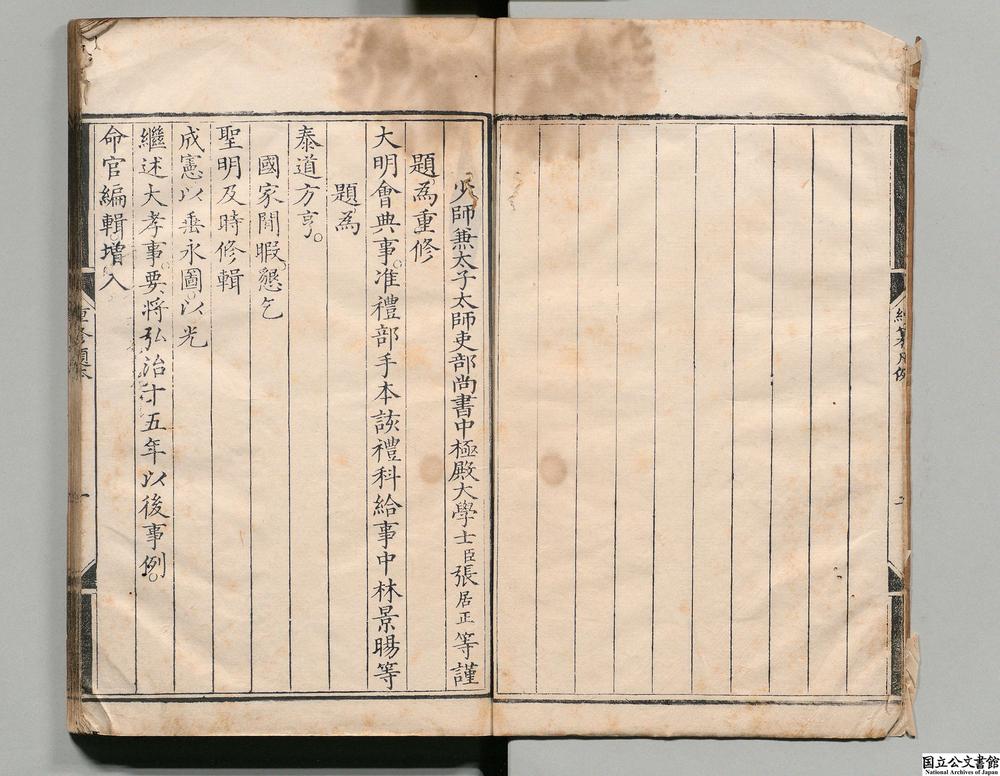 少師兼太子太師吏部尚書中極殿大學士臣張居正等謹
題為重修
大明會典事。准禮部手本該禮科給事中林景暘等
題為
泰道方亨。
國家閒暇。懇乞
聖明及時修輯
成憲以垂永圖。以光
繼述大孝事。要將弘治十五年以後事例。
命官編輯增入
重修題本
一
纂凡例
二
国立公文書館
National Archives of Japan